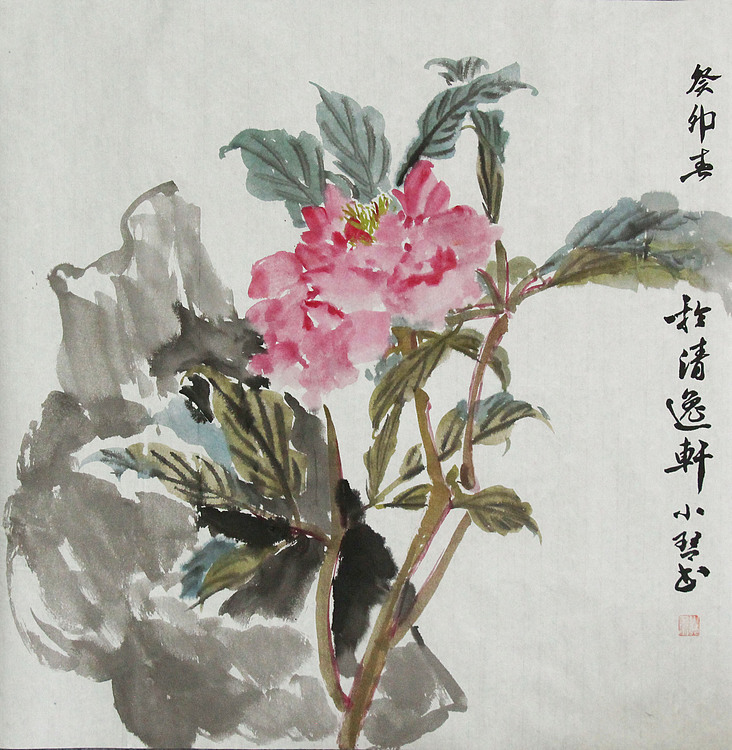 癸卯春 於清逸軒小琴